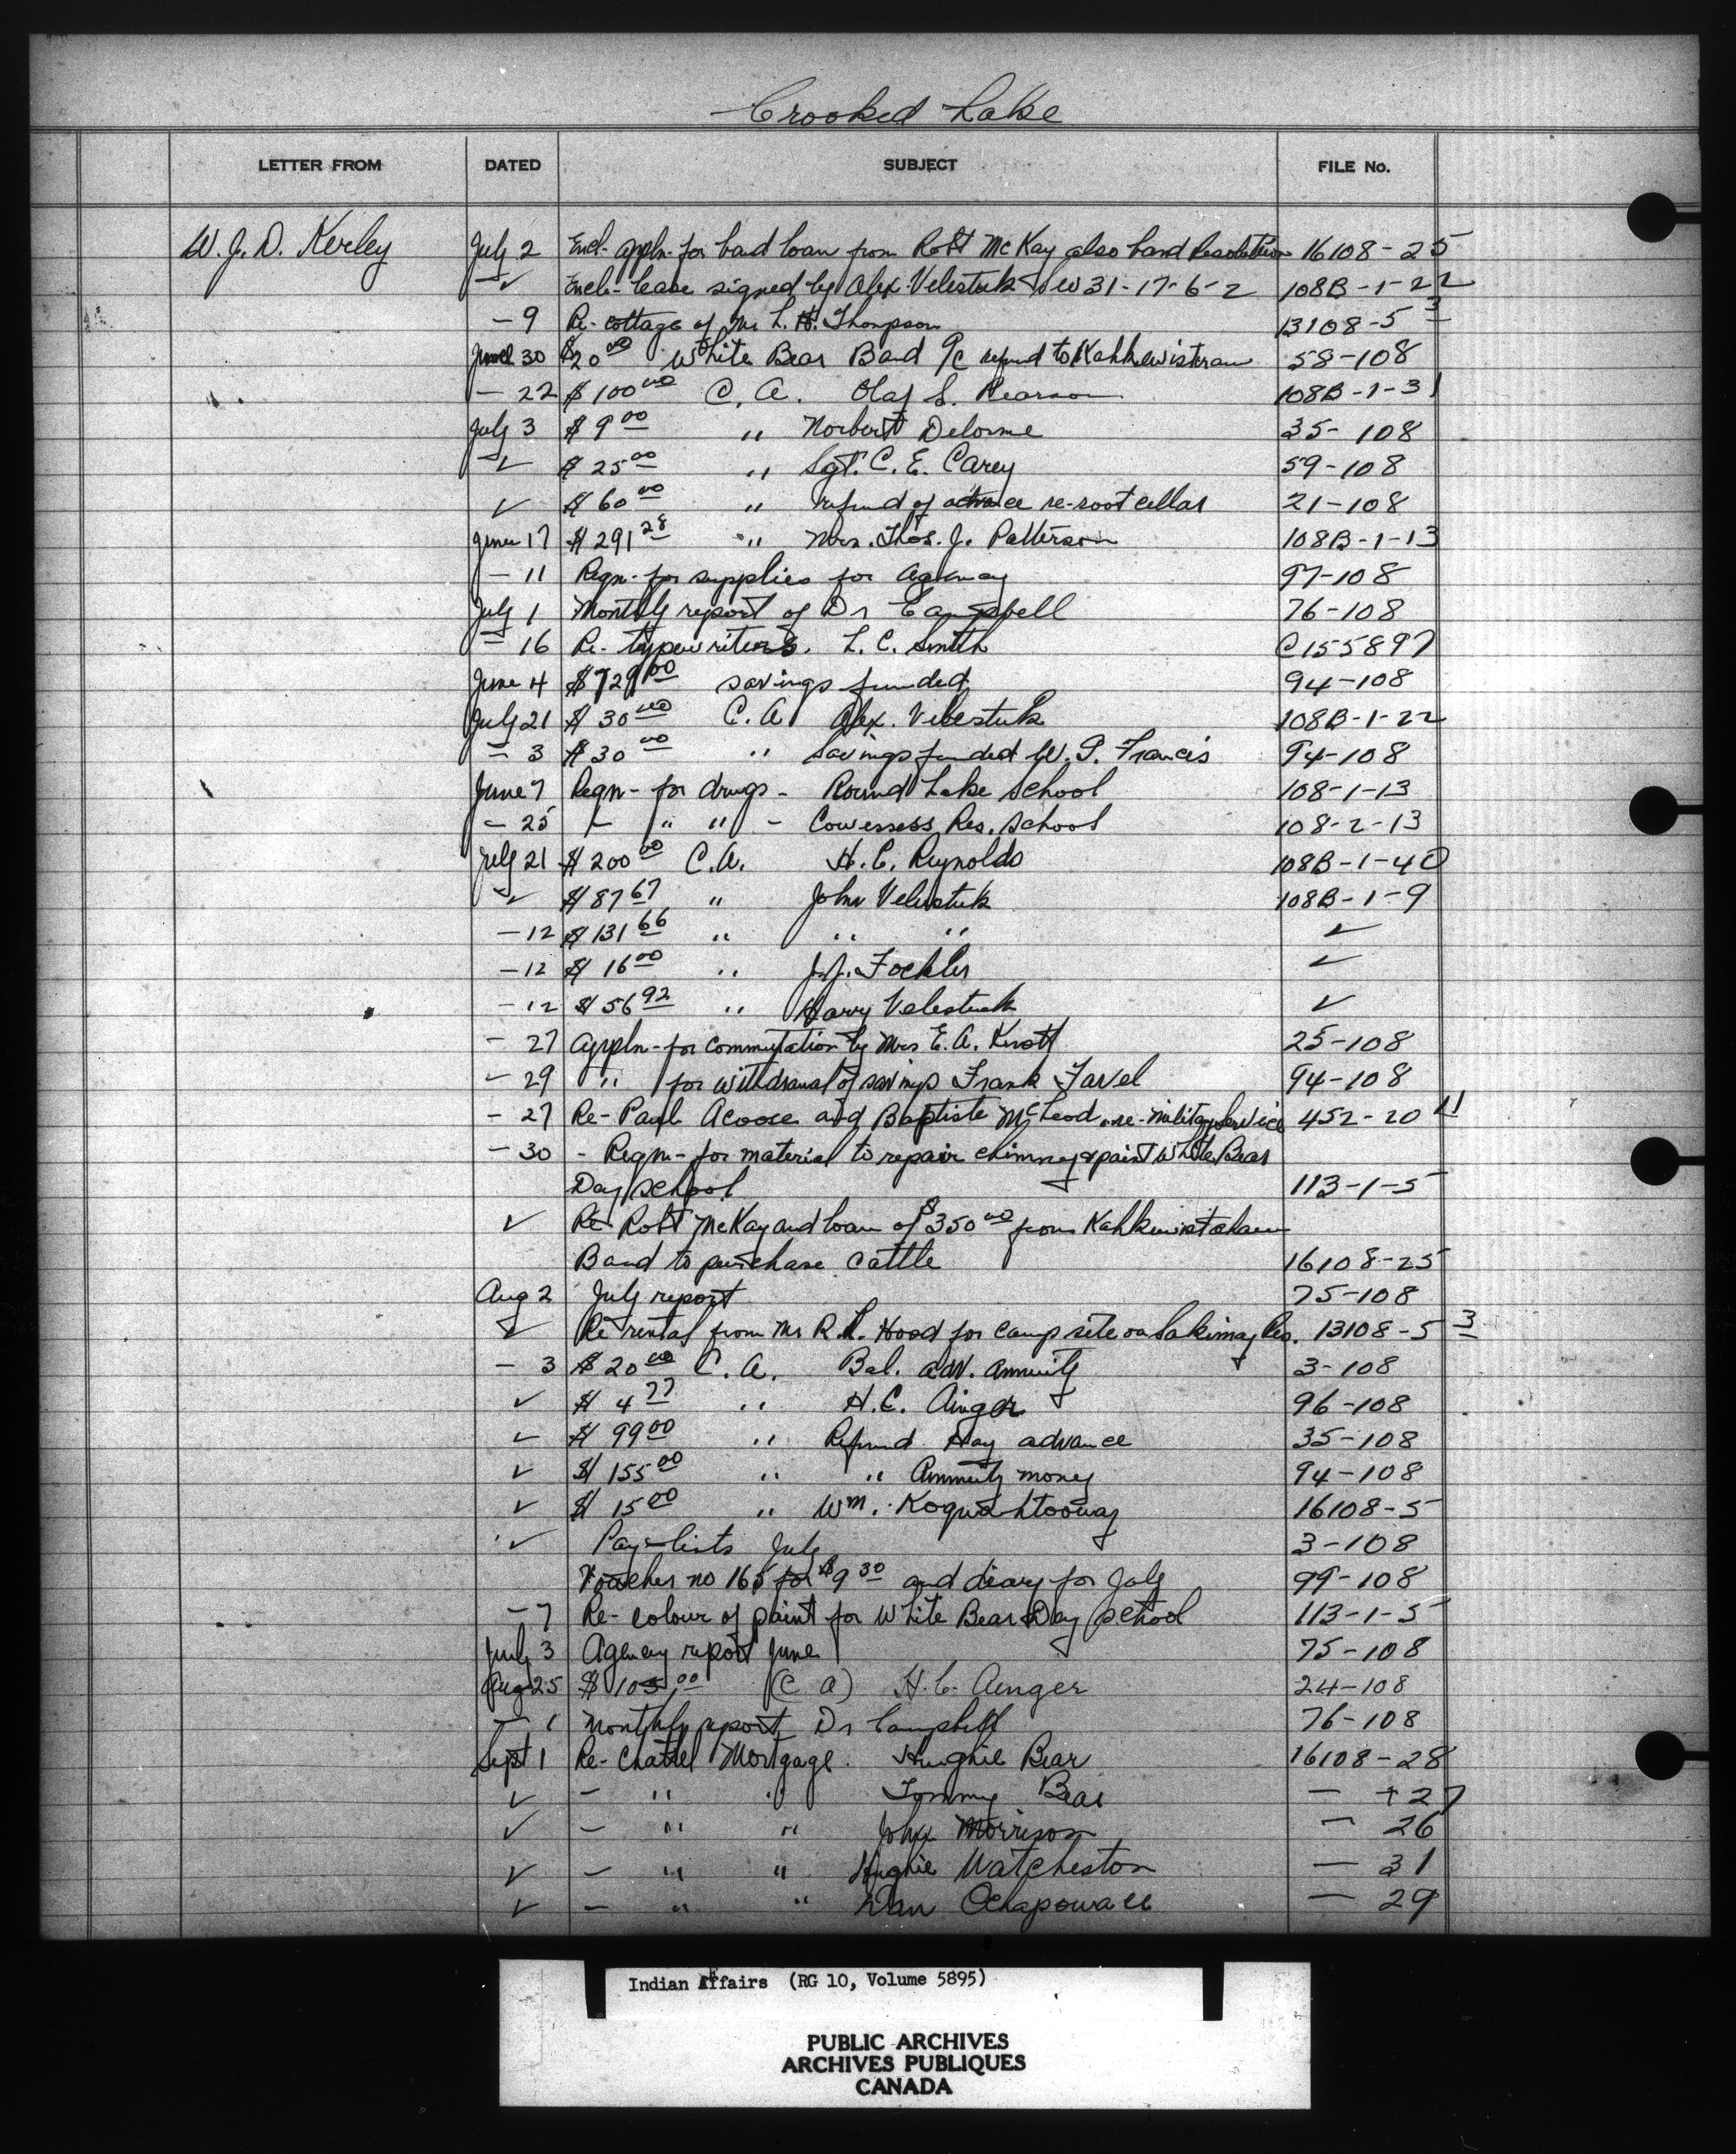 Crooked Lake
LETTER FROM DATED SUBJECT FILE No.
W. J. D. Kerley July 2 Encl- appln- for band loan from Robt McKay also band Resolution 16108-25
✓ Encl- lease signed by Alex Velestuk SW 31-17-6-2 108B-1-22
- 9 Re- cottage of Mr L. H. Thompson 13108-5 3
June 30 $20 00 White Bear Band a/c refund to 58-108
- 22 $100 00 C. A. Olaf S. Pearson 108B-1-31
July 3 $9 00 " Norbert Delorme 35-108
✓ $25 00 " Sgt. C. E. Carey 59-108
✓ $60 00 " refund of advance re-root cellar 21-108
June 17 $291 28 " Mrs. Thos. J. Patterson 108B-1-13
- 11 Reqn- for supplies for agency 97-108
July 1 Monthly report of Dr Campbell 76-108
- 16 Re- typewriters. L. C. Smith C155897
June 4 $729 00 savings funded 94-108
July 21 $30 00 C. A Alex. Velestuk 108B-1-22
- 3 $30 00 " Savings funded W. G. Francis 94-108
June 7 Reqn- for drugs - Round Lake School 108-1-13
- 25 - " " - Cowessess Res. School 108-2-13
July 21 $200 00 C.A. H. C. Reynolds 108B-1-40
✓ $87 67 " John Velestuk 108B-1-9
- 12 $131 66 " " " ✓
- 12 $16 00 " J. J. Fockler ✓
- 12 $56 92 " Harry Velestuk ✓
- 27 Appln- for commutation by Mrs E. A. Knott 25-108
- 29 " for withdrawal of savings Frank Favel 94-108
- 27 Re- Paul Acoose and Baptiste McLeod -re- military service 452-20 11
- 30 - Reqn- for material to repair chimney & paint White Bear
Day School 113-1-5
✓ Re- Robt McKay and loan of $350 00 from Kahkewistahaw
Band to purchase cattle 16108-25
Aug 2 July report 75-108
✓ Re rental from Mr R. L. Hood for camp site on Sakimay Res. 13108-5 3
- 3 $20 00 C. A. Bal. adv. annuity 3-108
✓ $4 77 " H. C. Ainger 96-108
✓ $99 00 " Refund Hay advance 35-108
✓ $155 00 " " Annuity money 94-108
✓ $15 00 " Wm. 16108-5
✓ Pay-lists July 3-108
Voucher no 165 for $9 30 and diary for July 99-108
- 7 Re- colour of paint for White Bear Day School 113-1-5
July 3 Agency report June 75-108
Aug 25 $105.00 (C A) H. C. Ainger 24-108
- 1 Monthly report Dr Campbell 76-108
Sept 1 Re- Chattel Mortgage. Hughie Bear 16108-28
✓ - " " Tommy Bear - + 27
✓ - " " John Morrison - 26
✓ - " " Hughie Watcheston - 31
✓ - " " Dan Ochapowace - 29
Indian Affairs (RG 10, Volume 5895)
PUBLIC ARCHIVES
ARCHIVES PUBLIQUES
CANADA